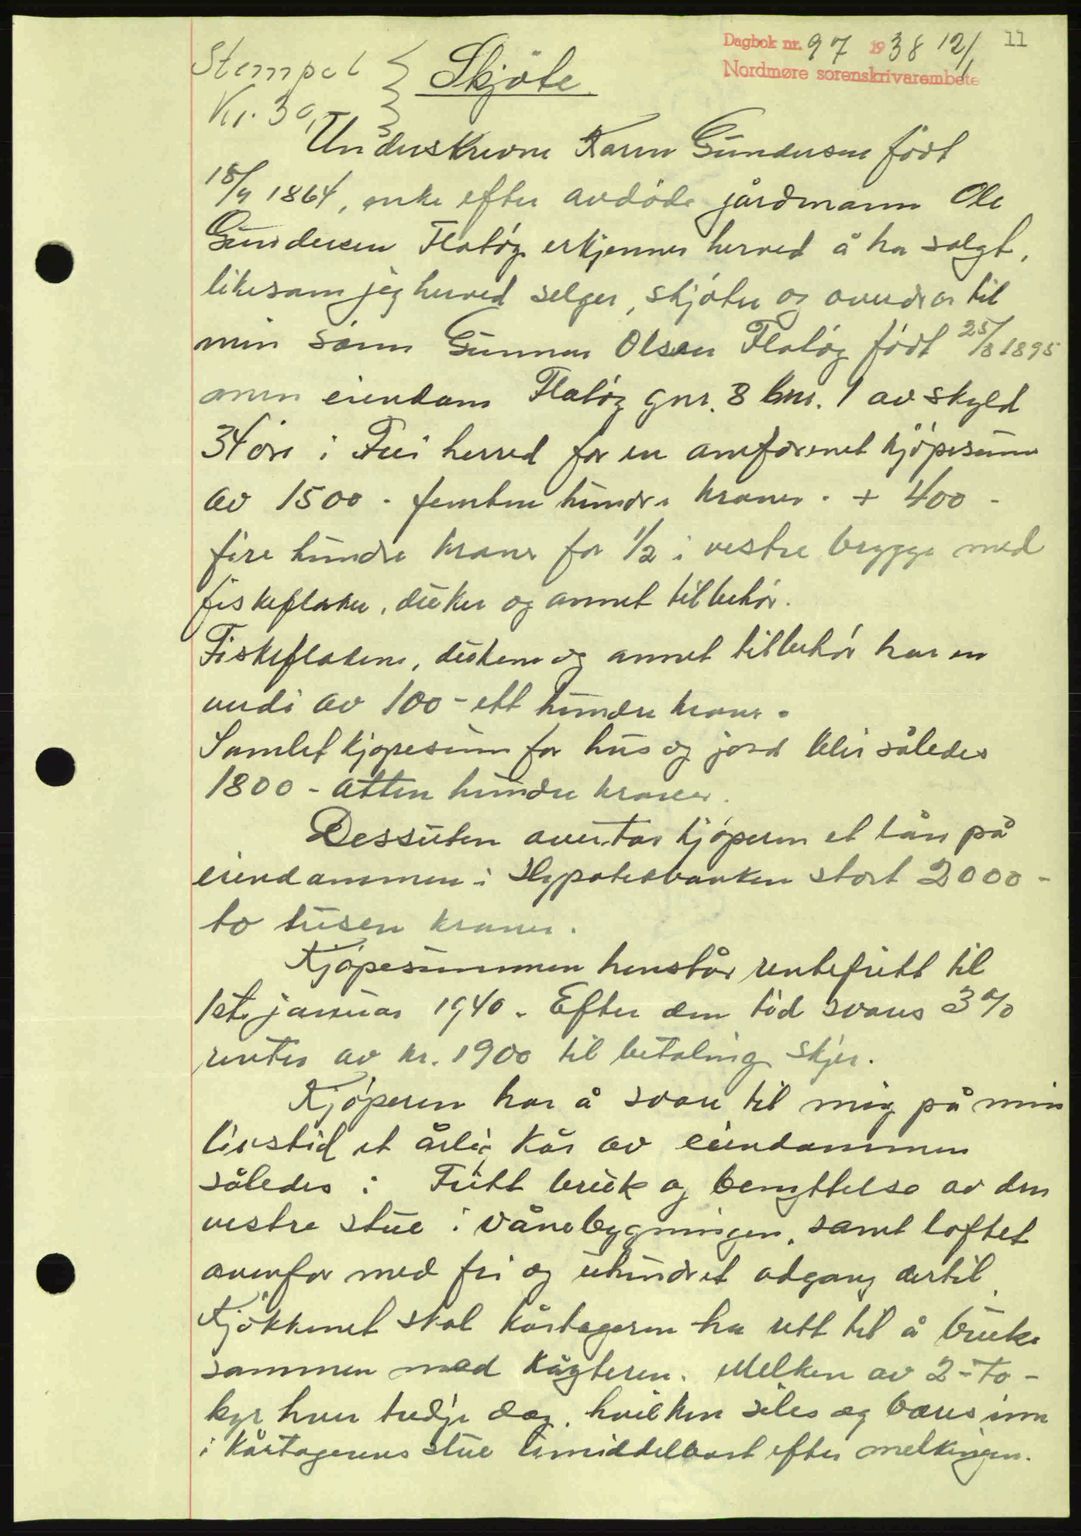 Dagbok nr. 97 1938 12/1 11
Nordmøre sorenskrivarembete
Stempel
Kr. 30,
Skjøte
Underskrevne Karen Gundersen født
18/4 1864, enke efter avdøde gårdmann Ole
Gundersen Flatøy erkjenner herved å ha solgt,
likesom jeg herved selger, skjøter og overdrar til
min sønn Gunnar Olsen Flatøy født 25/8 1895
min eiendom Flatøy gnr. 8 bnr. 1 av skyld
34 øre i Frei herred for en omforenet kjøpesum
av 1500 - femten hundre kroner. + 400 -
fire hundre kroner for 1/2 i vestre brygge med
fiskeflaker, duker og annet tilbehør.
Fiskeflakene, dukene og annet tilbehør har en
verdi av 100 - ett hundre kroner.
Samlet kjøpesum for hus og jord blir således
1800 - atten hundre kroner.
Dessuten overtar kjøperen et lån på
eiendommen i Hypotekbanken stort 2000 -
to tusen kroner.
Kjøpesummen henstår rentefritt til
1ste januar 1940. Efter den tid svares 3%
renter av kr. 1900 til betaling skjer.
Kjøperen har å svare til mig på min
livstid et årlig kår av eiendommen
således: Fritt bruk og benyttelse av den
vestre stue i vånebygningen, samt loftet
ovenfor med fri og uhindret adgang dertil.
Kjøkkenet skal kårtageren ha rett til å bruke
sammen med kåryteren. Melken av 2 - to -
kyr hver tredje dag, hvilken siles og bæres inn
i kårtagerens stue umiddelbart efter melkingen.